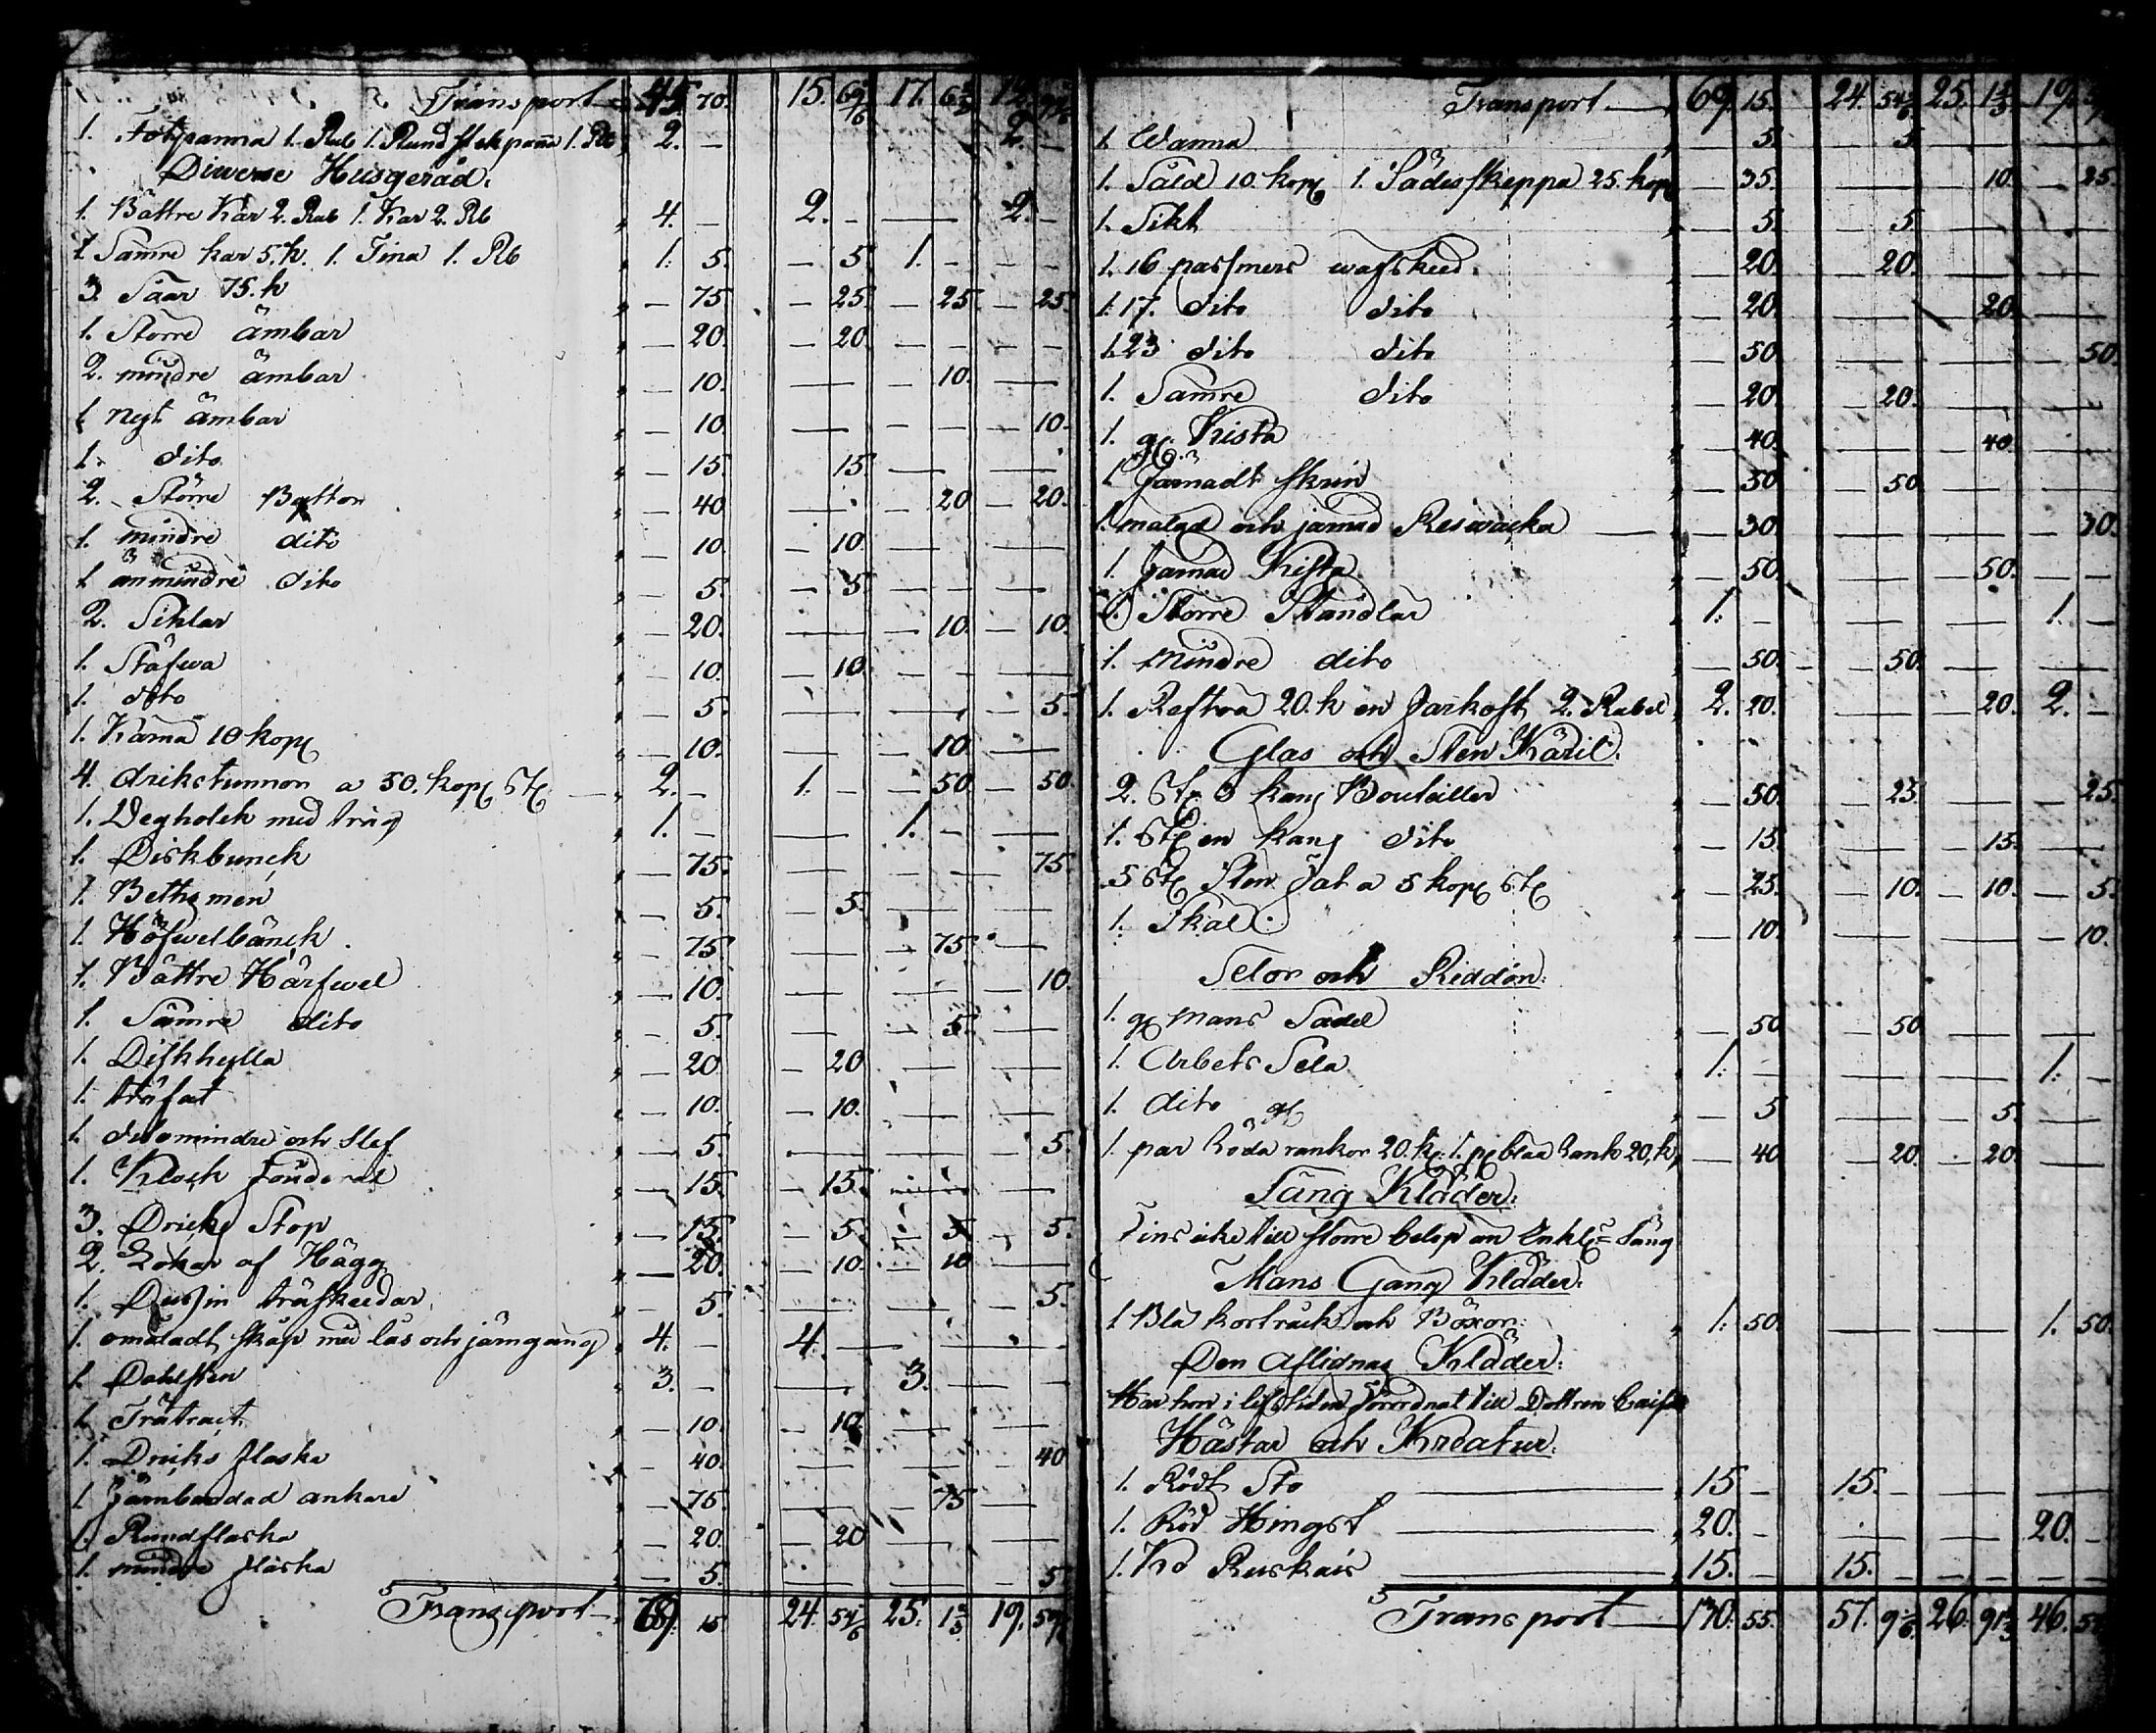 Transport 45. 70. 15. 17. 6⅔
1. Fotpanna 1. Rub 1. Rund stekpaña 1. Rb 2. — 2. —
Diwerse Husgeråd:
1. Bättre Kar 2. Rub 1. Kar 2. Rb 4. — 2. — — 2. —
1. Sämre kar 5. k. 1. Tina 1. Rb 1. 5. — 5. 1. — — —
3. Såar 75. k — 75. — 25. — 25. — 25.
1. Större ämbar — 20. — 20. — — — —
2. mindre ämbar — 10. — — 10. —
1. nyt ämbar — 10. — — — — 10.
1. dito — 15. 15. — —
2. Större Bytton — 40. — — 20. — 20.
1. mindre dito — 10. — 10. — —
1. än mindre dito — 5. — 5. — —
2. Siklar — 20. — — 10. — 10.
1. Stäfwa — 10. — 10. — —
1. dito — 5. — — — 5.
1. Kärna 10 kop — 10. — — 10. —
4. drikstunnor a 50. kop St 2. — 1. — — 50. — 50.
1. Degholck med tråg 1. — — 1. — —
1. Diskbunck — 75. — — — 75.
1. Bethsmen — 5. — 5. — —
1. Höfwelbänck — 75. — — 75. —
1. Bättre Härfwel — 10. — — 10.
1. Sämre dito — 5. — — 5. —
1. Diskhylla — 20. — 20. — —
1. träfat — 10. — 10. — —
1. dito mindre och Slef — 5. — — 5.
1. Klock foderal — 15. — 15. — —
3. Dricks Stop — 15. — 5. — 5. — 5.
2. af Hägg — 20. — 10. — 10. —
1. Dusin träskedar — 5. — — — 5.
1. omåladt skåp med lås och järngång 4. — 4. — — —
1. 3. — — 3. — — —
1. Trätract — 10. — 10. — —
1. Dricks flaska — 40. — — 40.
1. Järnbandad ankare — 75. — — 75. —
1. Rundflaska — 20. — 20. — —
1. mindre flaska — 5. — — — 5.
Transport 69. 15. 24. 54⅚ 25. 1⅔ 19.
Transport 69. 15. 24. 54⅚ 25. 1⅔ 19.
1. Wanna — 5. 5. — —
1. Såld 10. kop 1. Sädesskeppa 25. kop — 35. — 10. — 25.
1. Sikt — 5. 5. — —
1. 16 pasmers wafsked. — 20. 20. — —
1. 17. dito dito — 20. — 20. —
1. 23 dito dito — 50. — — — 50.
1. Sämre dito — 20. — 20. — —
1. gl. Kista — 40. — 40. —
1. Järnadt skrin — 50. — 50. — —
1. målad och järnad Reswacka — 30. — — — 30.
1. Järnad Kista — 50. — — 50. — —
1. Större Standlar 1. — — — 1. —
1. mindre dito — 50. — 50. — —
1. 20. k en 2. Rubel 2. 20. — — 20. 2. —
Glas och Sten Käril.
2. St 3 kan Bouteiller — 50. — 25. — — 25.
1. St en kan dito — 15. — 15. —
5 St Sten fat a 5 kop St — 25. — 10. — 10. — 5.
1. Skål — 10. — — — 10.
Selor och Reddon:
1. gl mans Sadel — 50. — 50. — —
1. Arbets Sela 1. — — — 1. —
1. dito gl — 5. — — 5. —
1. par röda rankor 20. k. 1. p blåa rank 20. k — 40. — 20. — 20. —
Säng Kläder:
Fins icke till större belop än Enkl= Säng
Mans Gang Kläder:
1. Blå kortråck och Böxor. 1. 50. — — 1. 50.
Den Aflidnas Kläder:
Har hon i lifstiden förordnat till Dottren
Hästar och Kreatur.
1. Rödt Sto 15. — 15. — — —
1. Röd Hingst 20. — — — 20. —
1. Ko Ruskais 15. — 15. — — — — —
Transport 130. 55. 57. 9⅚ 26. 91⅔ 46.